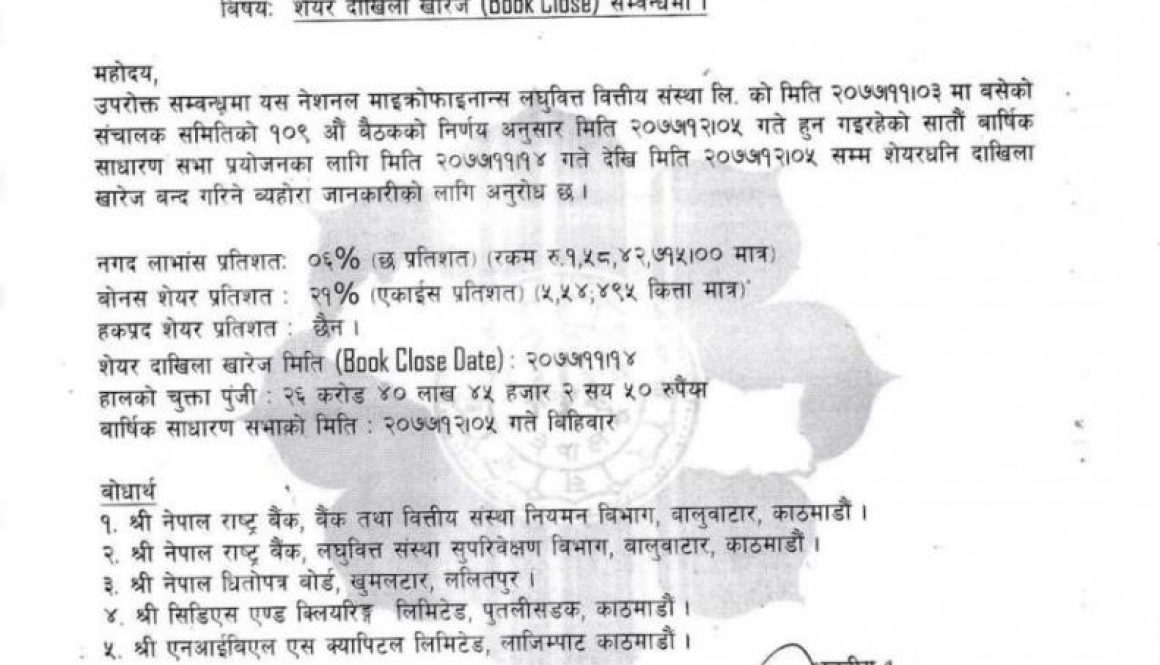 विषयः शेयर दाखिला खारेज (Book Close) सम्बन्धमा ।
महोदय,
उपरोक्त सम्बन्धमा यस नेशनल माइक्रोफाइनान्स लघुवित्त वित्तीय संस्था लि. को मिति २०७७।११।०३ मा बसेको
संचालक समितिको १०९ औं बैठकको निर्णय अनुसार मिति २०७७।१२।०५ गते हुन गइरहेको सातौं बार्षिक
साधारण सभा प्रयोजनका लागि मिति २०७७।११।१४ गते देखि मिति २०७७।१२।०५ सम्म शेयरधनि दाखिला
खारेज बन्द गरिने व्यहोरा जानकारीको लागि अनुरोध छ ।
नगद लाभांस प्रतिशतः ०६% (छ प्रतिशत) (रकम रु.१,५८,४२,७१५।०० मात्र)
बोनस शेयर प्रतिशत : २१% (एकाईस प्रतिशत) (५,५४,४९५ कित्ता मात्र)
हकप्रद शेयर प्रतिशत : छैन ।
शेयर दाखिला खारेज मिति (Book Close Date) : २०७७।११।१४
हालको चुक्ता पुंजी : २६ करोड ४० लाख ४५ हजार २ सय ५० रुपैंया
बार्षिक साधारण सभाको मिति : २०७७।१२।०५ गते बिहिवार
बोधार्थ
१. श्री नेपाल राष्ट्र बैंक, बैंक तथा वित्तीय संस्था नियमन विभाग, बालुवाटार, काठमाडौं ।
२. श्री नेपाल राष्ट्र बैंक, लघुवित्त संस्था सुपरिवेक्षण विभाग, बालुवाटार, काठमाडौं ।
३. श्री नेपाल धितोपत्र बोर्ड, खुमलटार, ललितपुर ।
४. श्री सिडिएस एण्ड क्लियरिङ्ग लिमिटेड, पुतलीसडक, काठमाडौं ।
५. श्री एनआईबिएल एस क्यापिटल लिमिटेड, लाजिम्पाट काठमाडौं ।